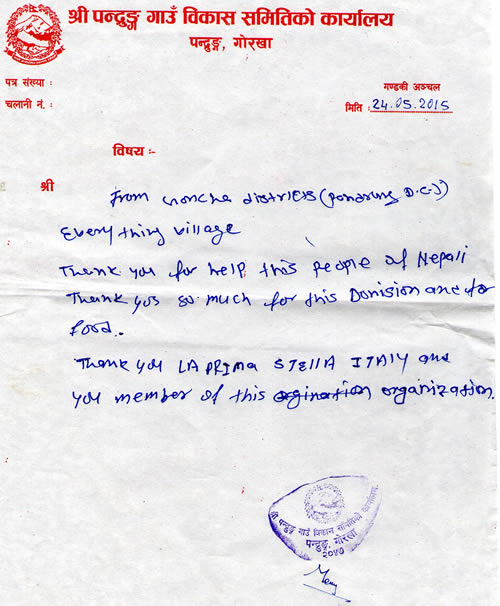 श्री पन्द्रुङ्ग गाउँ विकास समितिको कार्यालय
पन्द्रुङ्ग, गोरखा
पत्र संख्या :
चलानी नं. :
गण्डकी अञ्चल
मिति : 24.05.2015
विषय :-
श्री
From districts (
Every thing village
Thank you for help this people of Nepali
Thank yos so much for this Donision and for
food..
Thank you LA PRIMA STELLA ITALY and
you member of this organization.
श्री पन्द्रुङ्ग गाउँ विकास समितिको कार्यालय
पन्द्रुङ्ग, गोरखा
२०४७